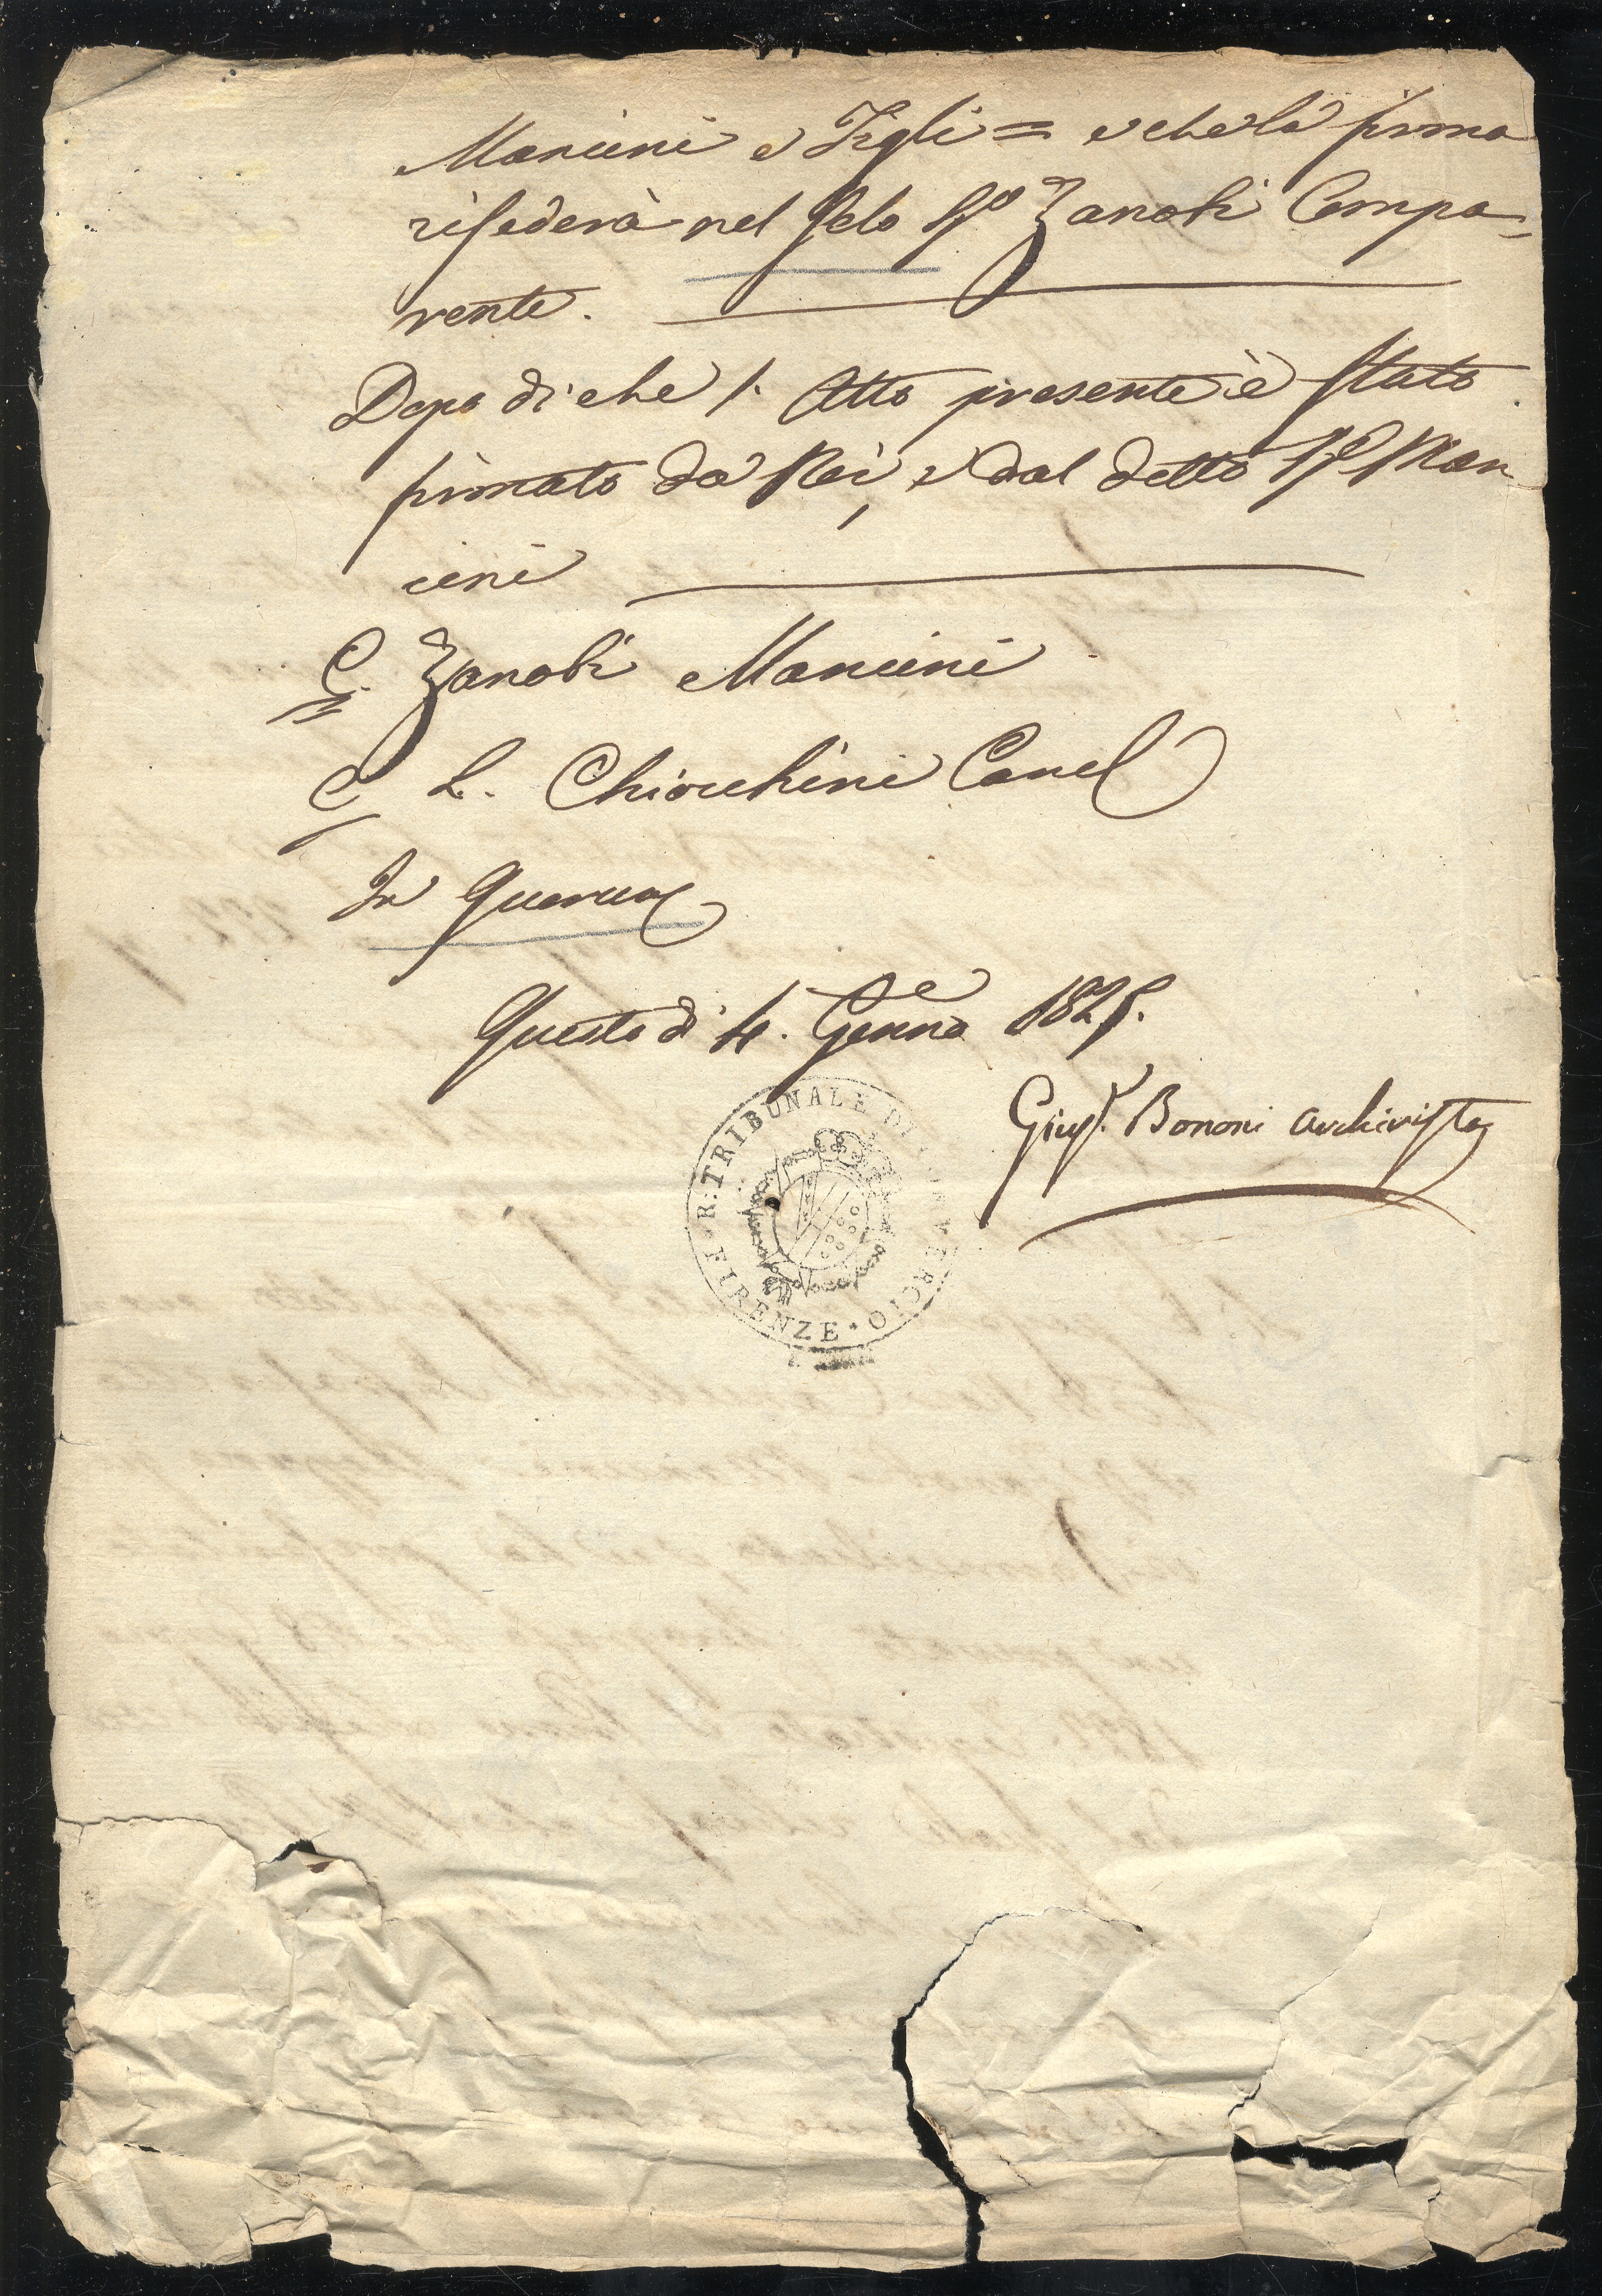 Mancini e Figli = e che la firma
risederà nel Solo Sr. Zanobi Compa=
rente.
Dopo di che l' Atto presente è stato
firmato da Noi, e dal detto Sr. Man
cini
C. Zanobi Mancini
C. L. Chiocchini Cancel
In Quorum
Questo dì 4. Genno 1825.
Giusp. Bononi Archivista
I. R. TRIBUNALE DI COMMERCIO
FIRENZE